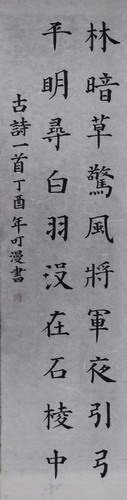 林暗草驚風將軍夜引弓
平明尋白羽沒在石棱中
古詩一首丁酉年可漫書